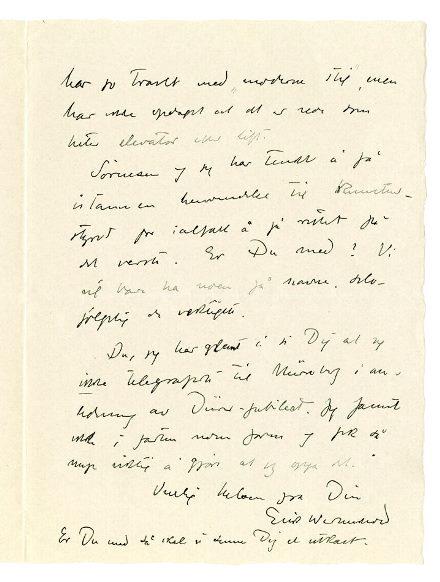 har jo travlt med "moderne stil", men
har ikke opdaget at det er noe som
heter elevator eller lift.
Sørensen og jeg har tenkt å få
istann en henvendelse til
styret for ialfall å få rettet på
det verste. Er Du med? Vi
vil bare ha noen få navne, selv-
følgelig de viktigste.
Du, jeg har glemt i si Dig at jeg
ikke telegraferte til Nürnberg i an-
ledning av Dürer-jubileet. Jeg fannt
ikke i farten noen form og fik så
meget viktig å gjøre at jeg det.
Venlig hilsen fra Din
Er Du med så skal vi sende Dig et utkast.